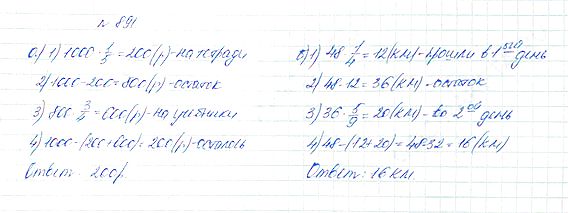 № 891
а) 1) 1000 · 1/5 = 200 (р) - на тетради
2) 1000 - 200 = 800 (р) - остаток
3) 800 · 3/4 = 600 (р) - на учебники
4) 1000 - (200 + 600) = 200 (р) - осталось
Ответ: 200 р.
б) 1) 48 · 1/4 = 12 (км) - прошли в 1ый день
2) 48 - 12 = 36 (км) - остаток
3) 36 · 5/9 = 20 (км) - во 2ой день
4) 48 - (12 + 20) = 48 - 32 = 16 (км)
Ответ: 16 км